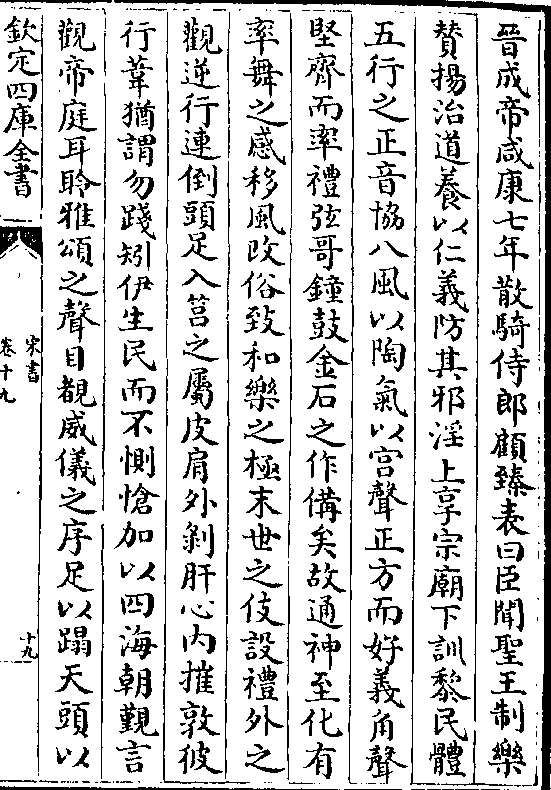 晉成帝咸康七年散騎侍郎顧臻表曰臣聞聖王制樂
賛揚治道養以仁義防其邪淫上享宗廟下訓黎民體
五行之正音協八風以陶氣以宫聲正方而好義角聲
堅齊而率禮弦哥鐘鼓金石之作備矣故通神至化有
率舞之感移風改俗致和樂之極末世之伎設禮外之
觀逆行連倒頭足入筥之屬皮肩外剝肝心内摧敦彼
行葦猶謂勿踐矧伊生民而不惻愴加以四海朝覲言
觀帝庭耳聆雅頌之聲目覩威儀之序足以蹋天頭以
欽定四庫全書
宋書
卷十九
十九